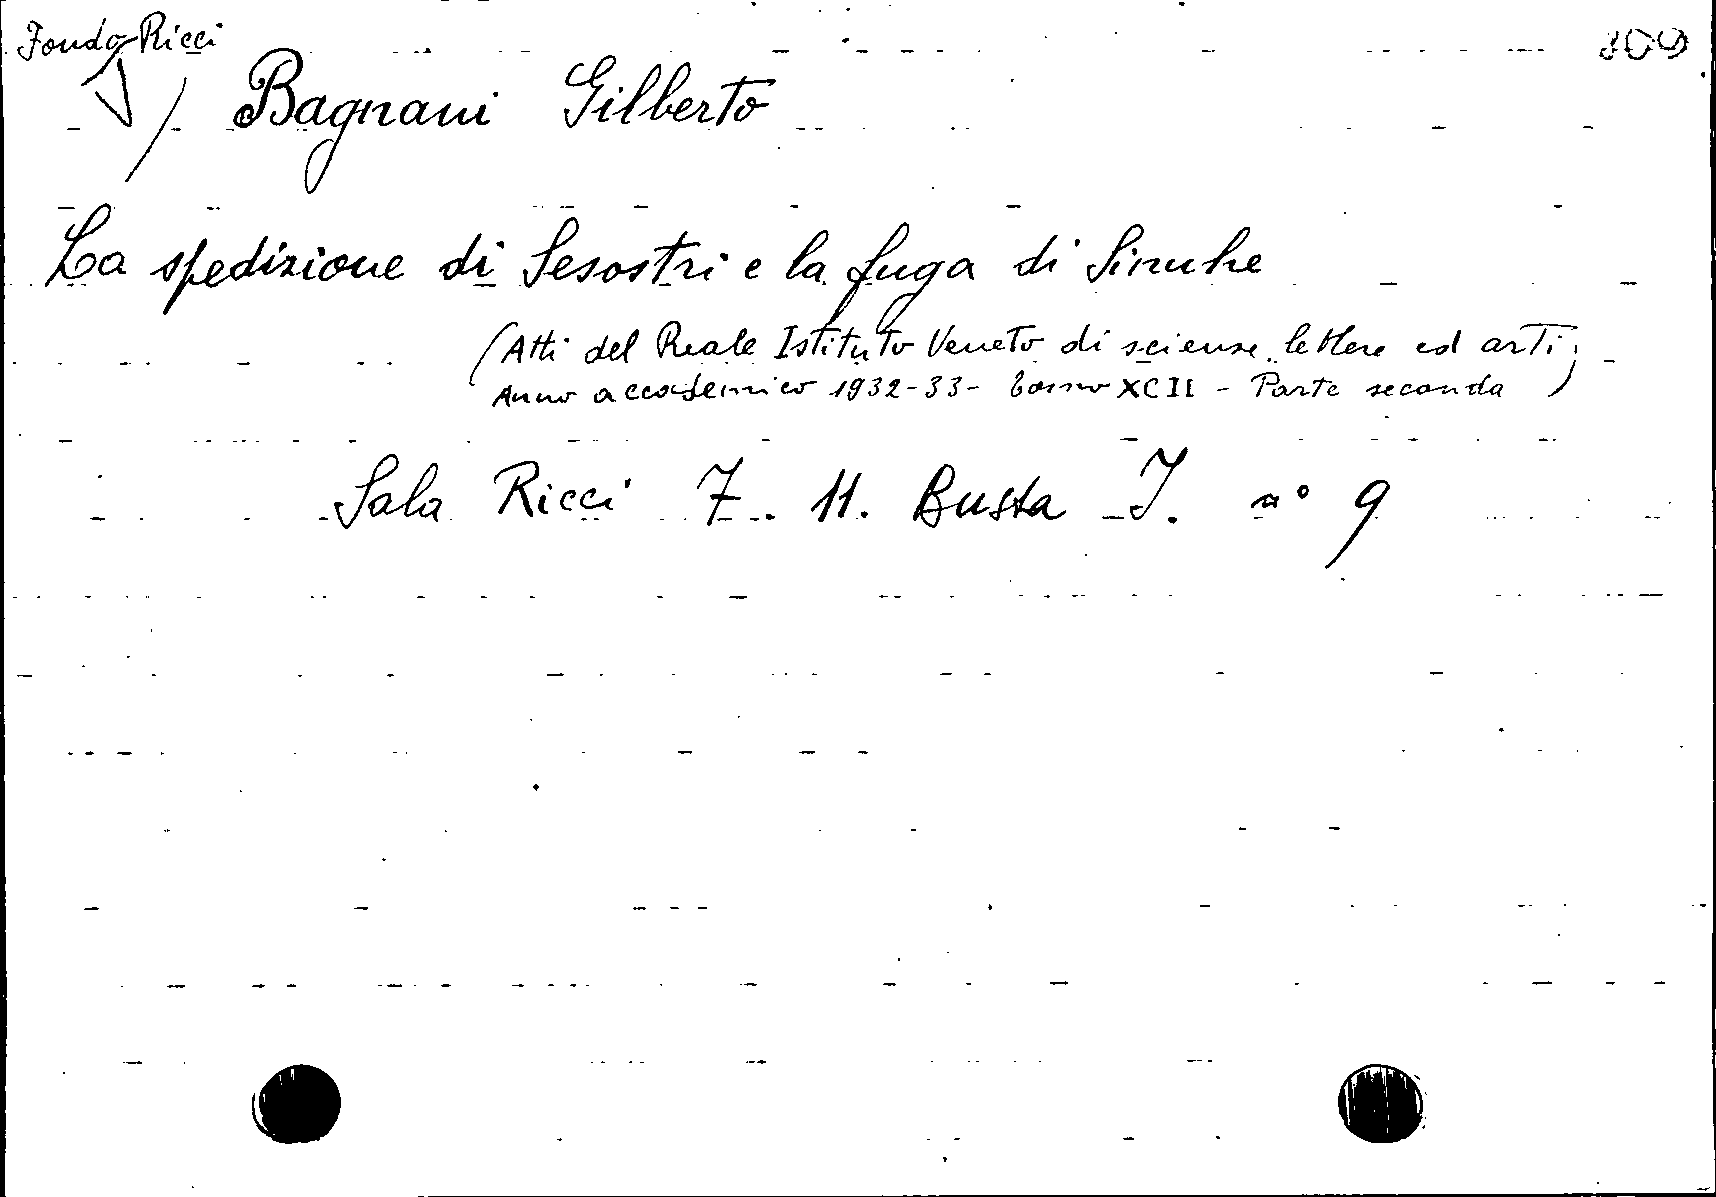 Fondo Ricci
809
Bagnani Gilberto
La spedizione di Sesostri e la fuga di Sinuhe
(Atti del Reale Istituto Veneto di scienze lettere ed arti,
Anno accademico 1932-33- tomo XCII - Parte seconda)
Sala Ricci 7. 11. Busta I. n° 9